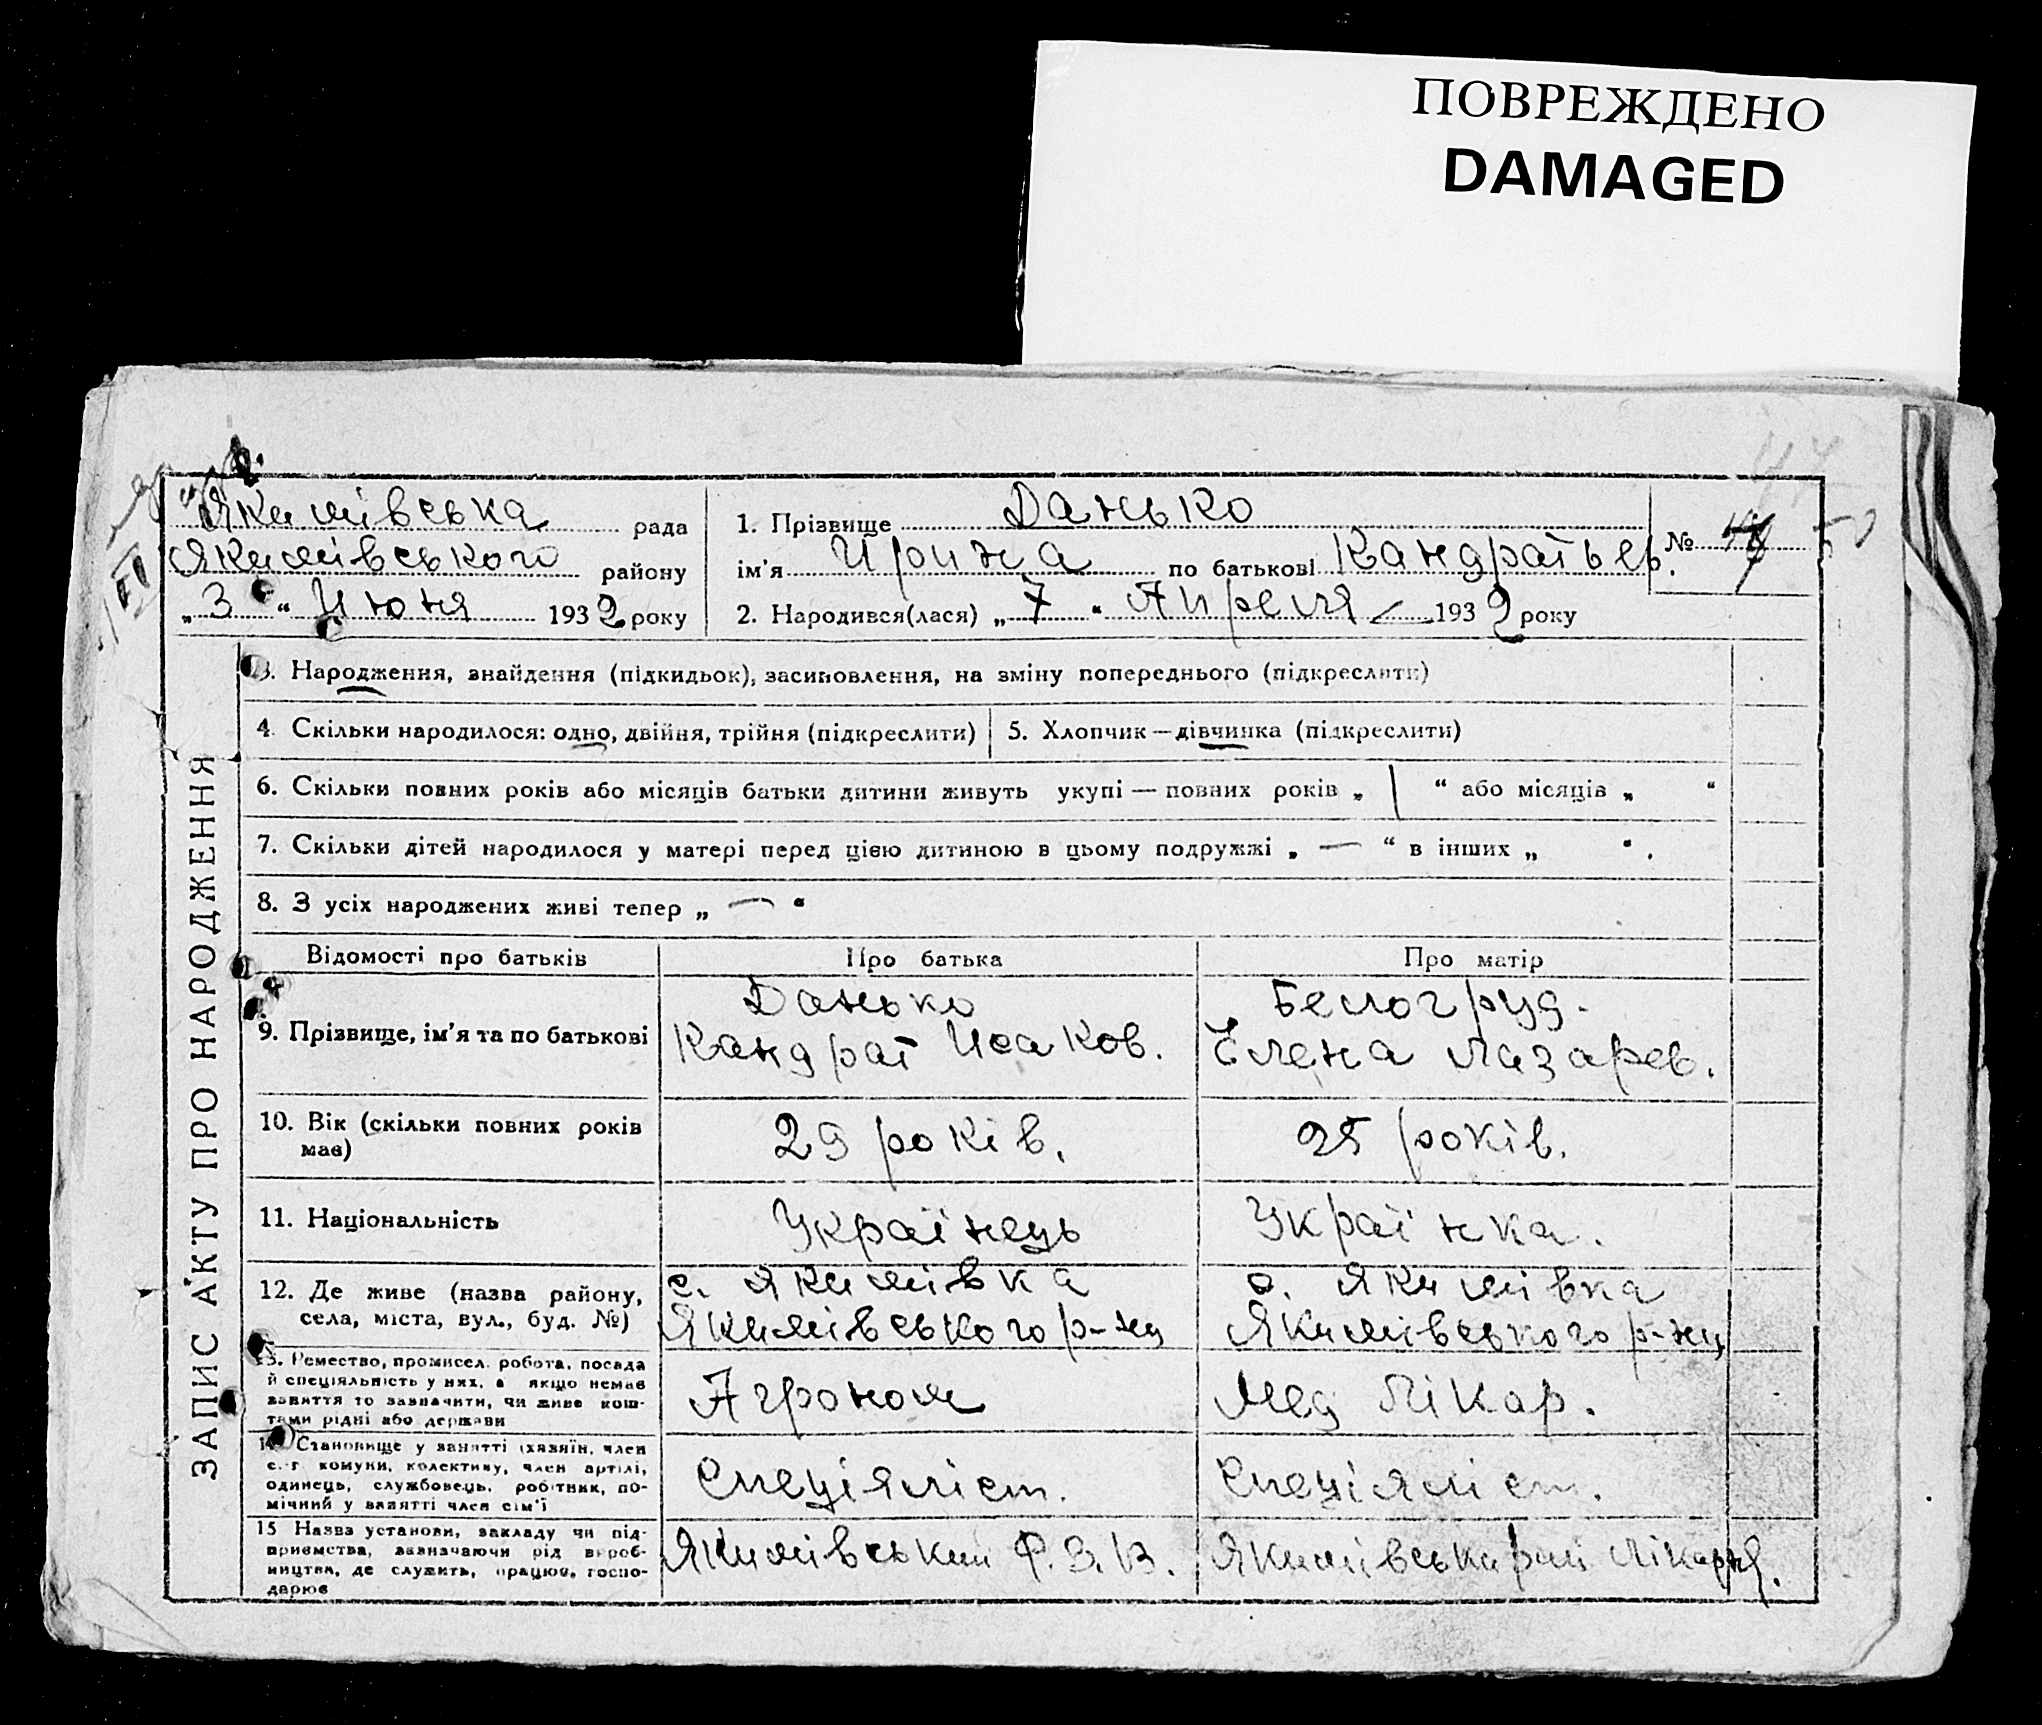 ПОВРЕЖДЕНО
DAMAGED
Якимівська рада
Якимівського району
„3“ Июня 1932 року
1. Прізвище Данько
ім'я Ирина по батькові Кандратьев.
№
50
2. Народився(лася) „7“ Апреля 1932 року
ЗАПИС АКТУ ПРО НАРОДЖЕННЯ
3. Народження, знайдення (підкидьок), засиновлення, на зміну попереднього (підкреслити)
4. Скільки народилося: одно, двійня, трійня (підкреслити)
5. Хлопчик — дівчинка (підкреслити)
6. Скільки повних років або місяців батьки дитини живуть укупі — повних років „1“ або місяців „ “
7. Скільки дітей народилося у матері перед цією дитиною в цьому подружжі „—“ в інших „ “.
8. З усіх народжених живі тепер „—“
Відомості про батьків
Про батька
Про матір
9. Прізвище, ім'я та по батькові
Данько
Кандрат Исаков.
Белогруд.
Елена Лазарев.
10. Вік (скільки повних років
має)
29 років.
25 років.
11. Національність
Українець
Українка.
12. Де живе (назва району,
села, міста, вул., буд. №)
с. Якимівка
Якимівського р-ну
с. Якимівка
Якимівського р-ну
13. Ремество, промисел, робота, посада
й спеціяльність у них, а якщо немає
заняття то зазначити, чи живе кош-
тами рідні або держави
Агроном
Мед Лікар.
14. Становище у занятті (хазяїн, член
с.-г. комуни, колективу, член артілі,
одинець, службовець, робітник, по-
мічний у занятті член сім'ї
Спеціяліст.
Спеціяліст.
15 Назва установи, закладу чи під-
приємства, зазначаючи рід вироб-
ництва, де служить, працює, госпо-
дарює
Якимівський Ф.З.В.
Якимівська рай Лікарня.